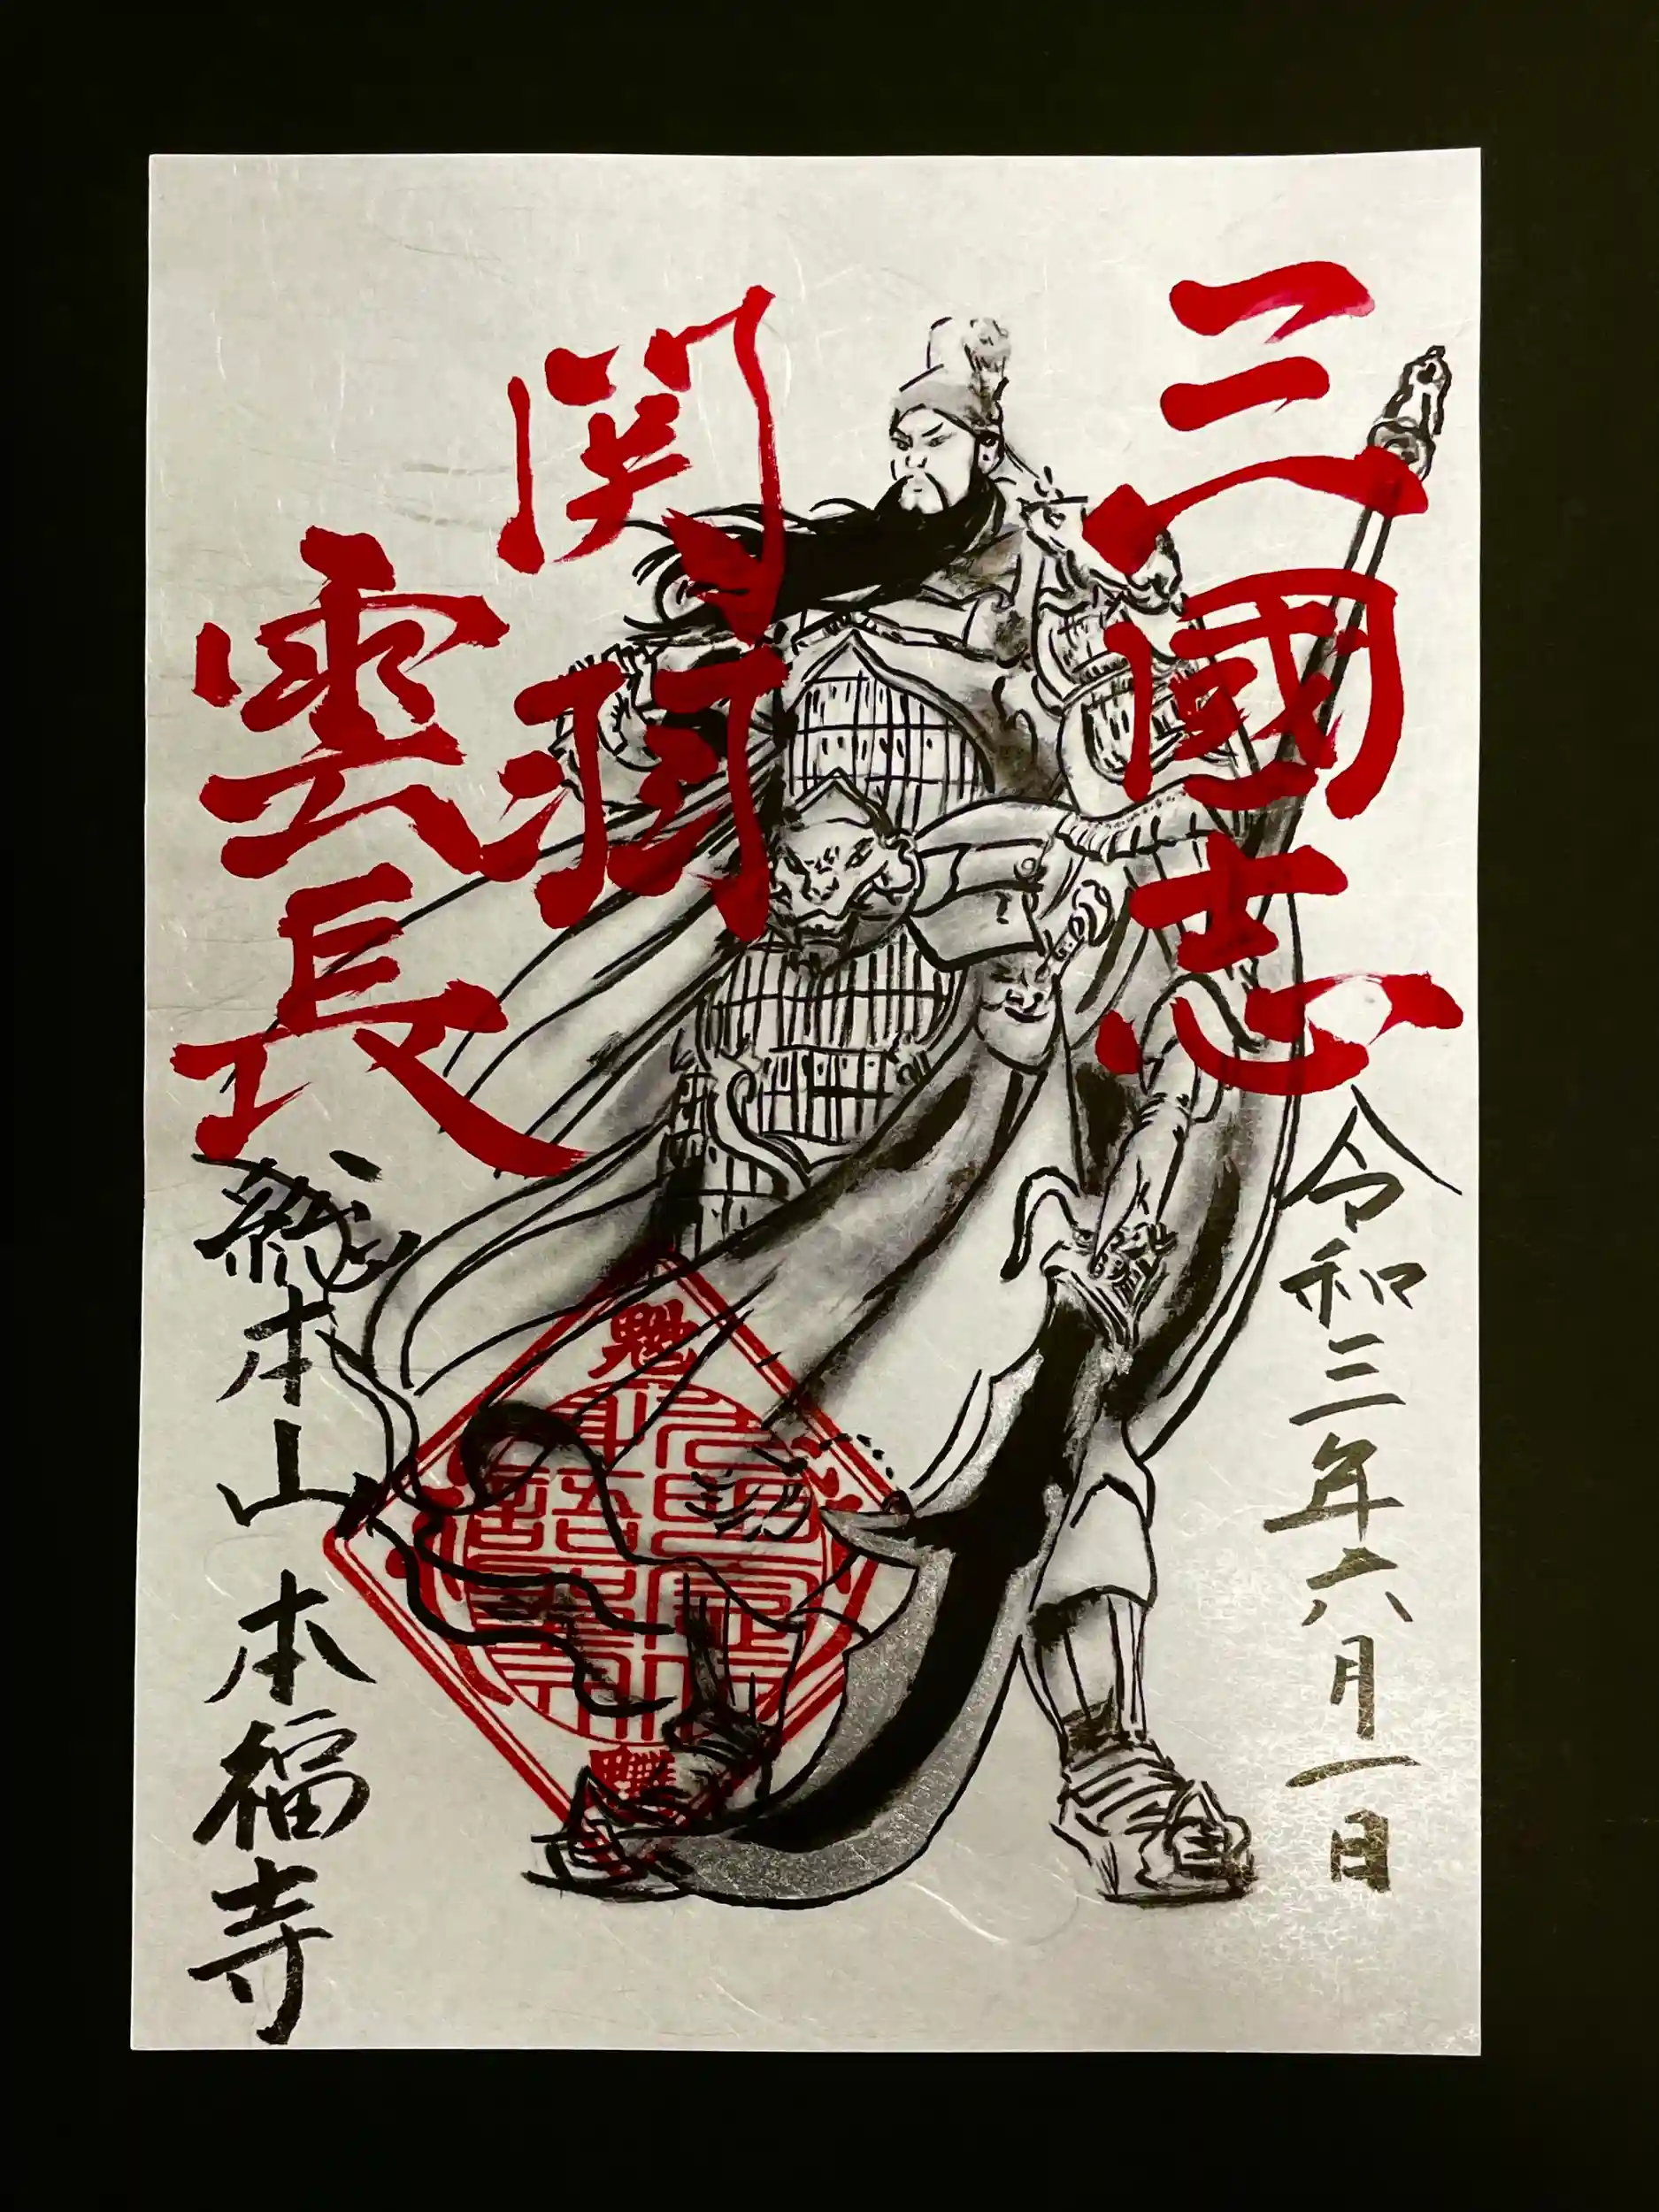 三國志
令和三年六月一日
関羽
雲長
総本山 本福寺